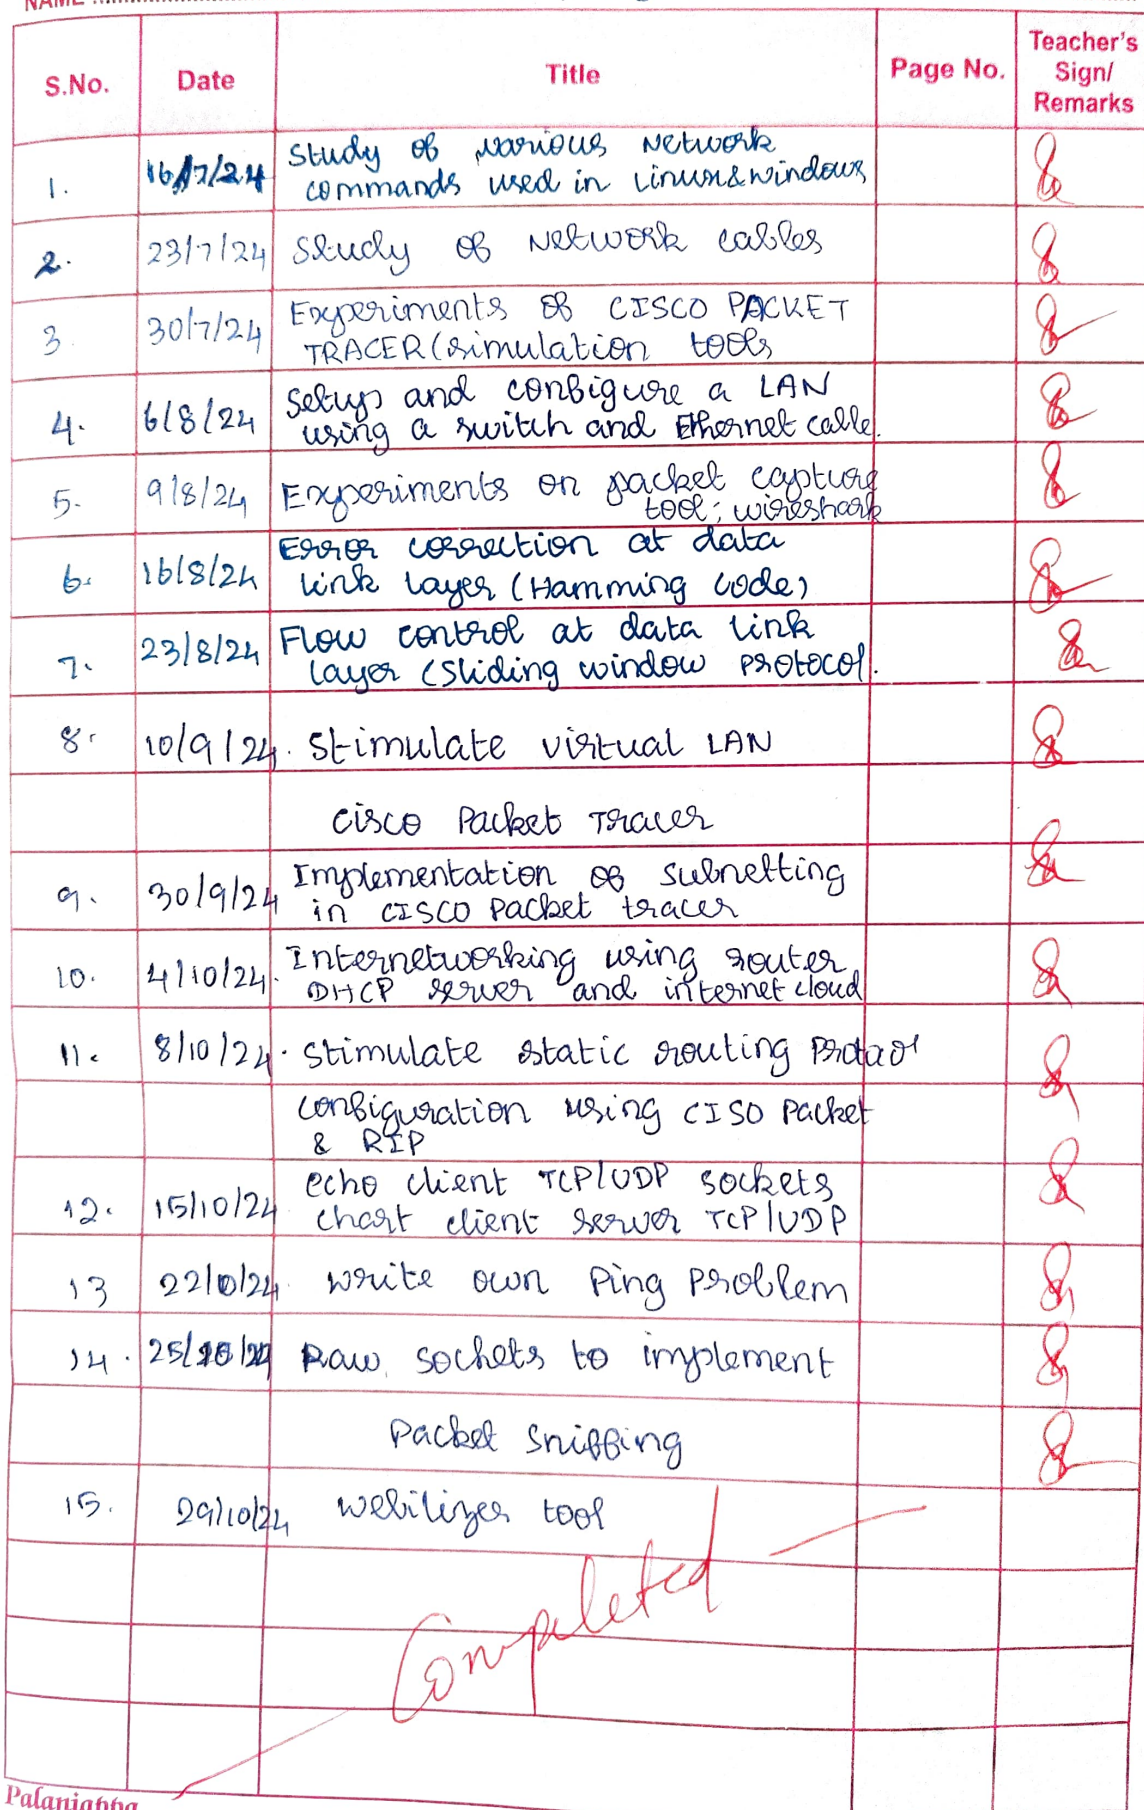 NAME
S.No.
Date
Title
Page No.
Teacher's
Sign/
Remarks
1.
16/7/24
Study of various Network
commands used in Linux & windows
2.
23/7/24
Study of Network cables
3.
30/7/24
Experiments of CISCO PACKET
TRACER (simulation tools
4.
6/8/24
Setup and configure a LAN
using a switch and Ethernet cable.
5.
9/8/24
Experiments on packet capture
tool; wireshark
6.
16/8/24
Error correction at data
link layer (Hamming code)
7.
23/8/24
Flow control at data link
layer (Sliding window protocol.
8.
10/9/24.
Stimulate virtual LAN
cisco Packet Tracer
9.
30/9/24
Implementation of subnetting
in CISCO Packet tracer
10.
4/10/24.
Internetworking using router
DHCP server and internet cloud
11.
8/10/24.
Stimulate static routing
configuration using CISO Packet
& RIP
12.
15/10/24
echo client TCP/UDP sockets
chart client server TCP/UDP
13
write own Ping problem
14.
Raw sockets to implement
Packet sniffing
15.
29/10/24
webilizer tool
Completed
Palaniappa